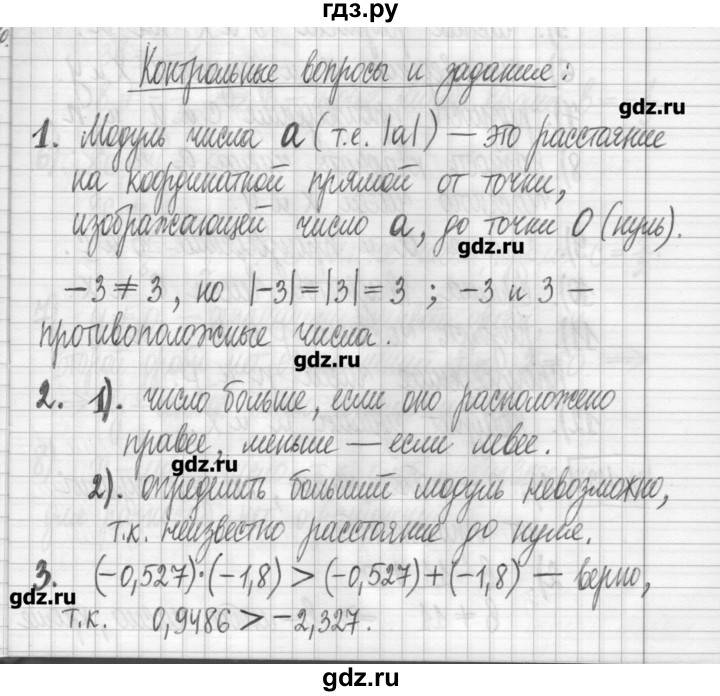 гдз.ру
Контрольные вопросы и задание:
gdz.ru
1. Модуль числа a (т.е. |a|) — это расстояние
на координатной прямой от точки,
изображающей число a, до точки 0 (нуль).
gdz.ru
−3 ≠ 3, но |−3|=|3|=3 ; −3 и 3 —
противоположные числа.
gdz.ru
2. 1). число больше, если оно расположено
правее, меньше — если левее.
gdz.ru
2). определить больший модуль невозможно,
т.к. неизвестно расстояние до нуля.
3. (−0,527)·(−1,8) > (−0,527)+(−1,8) — верно,
gdz.ru
gdz.ru
т.к. 0,9486 > −2,327.
gdz.ru